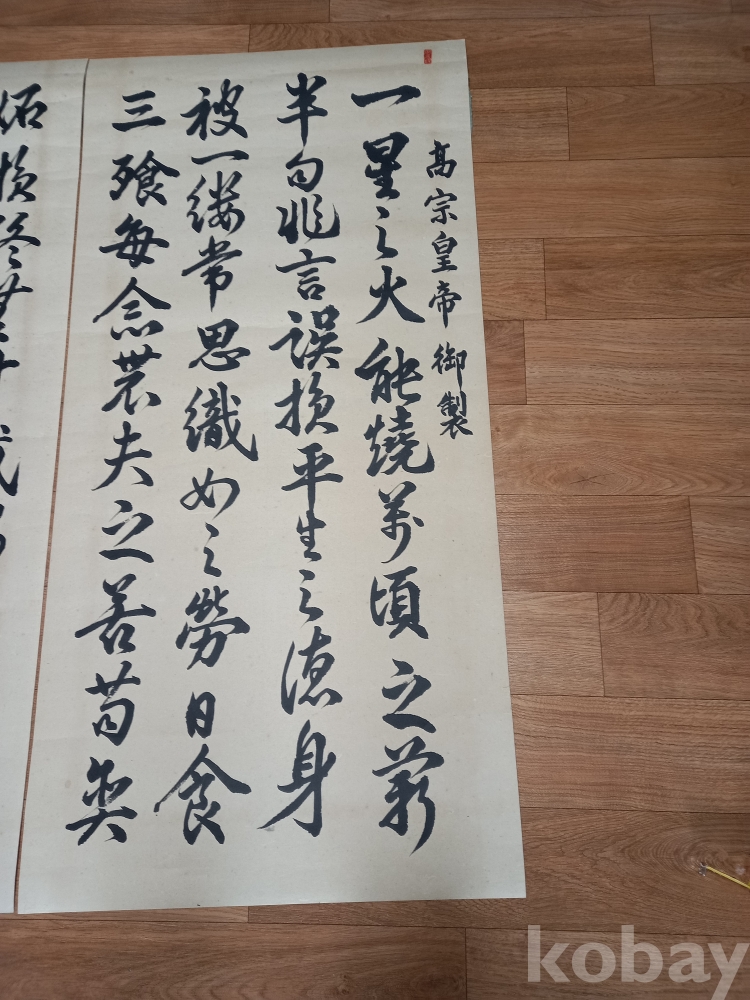 高宗皇帝御製
一星之火能燒萬頃之薪
半句非言誤損平生之德身
被一縷常思織女之勞日食
三飱每念農夫之苦苟貪
妬損終無十載安
kobay